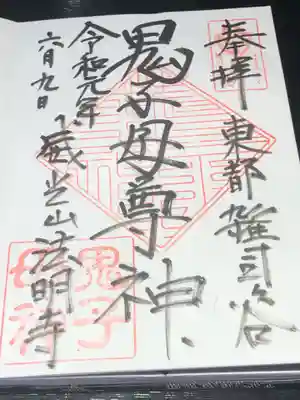 奉拝
東都 雑司谷
鬼子母尊神
令和元年
六月九日
威光山 法明寺
鬼子
母神